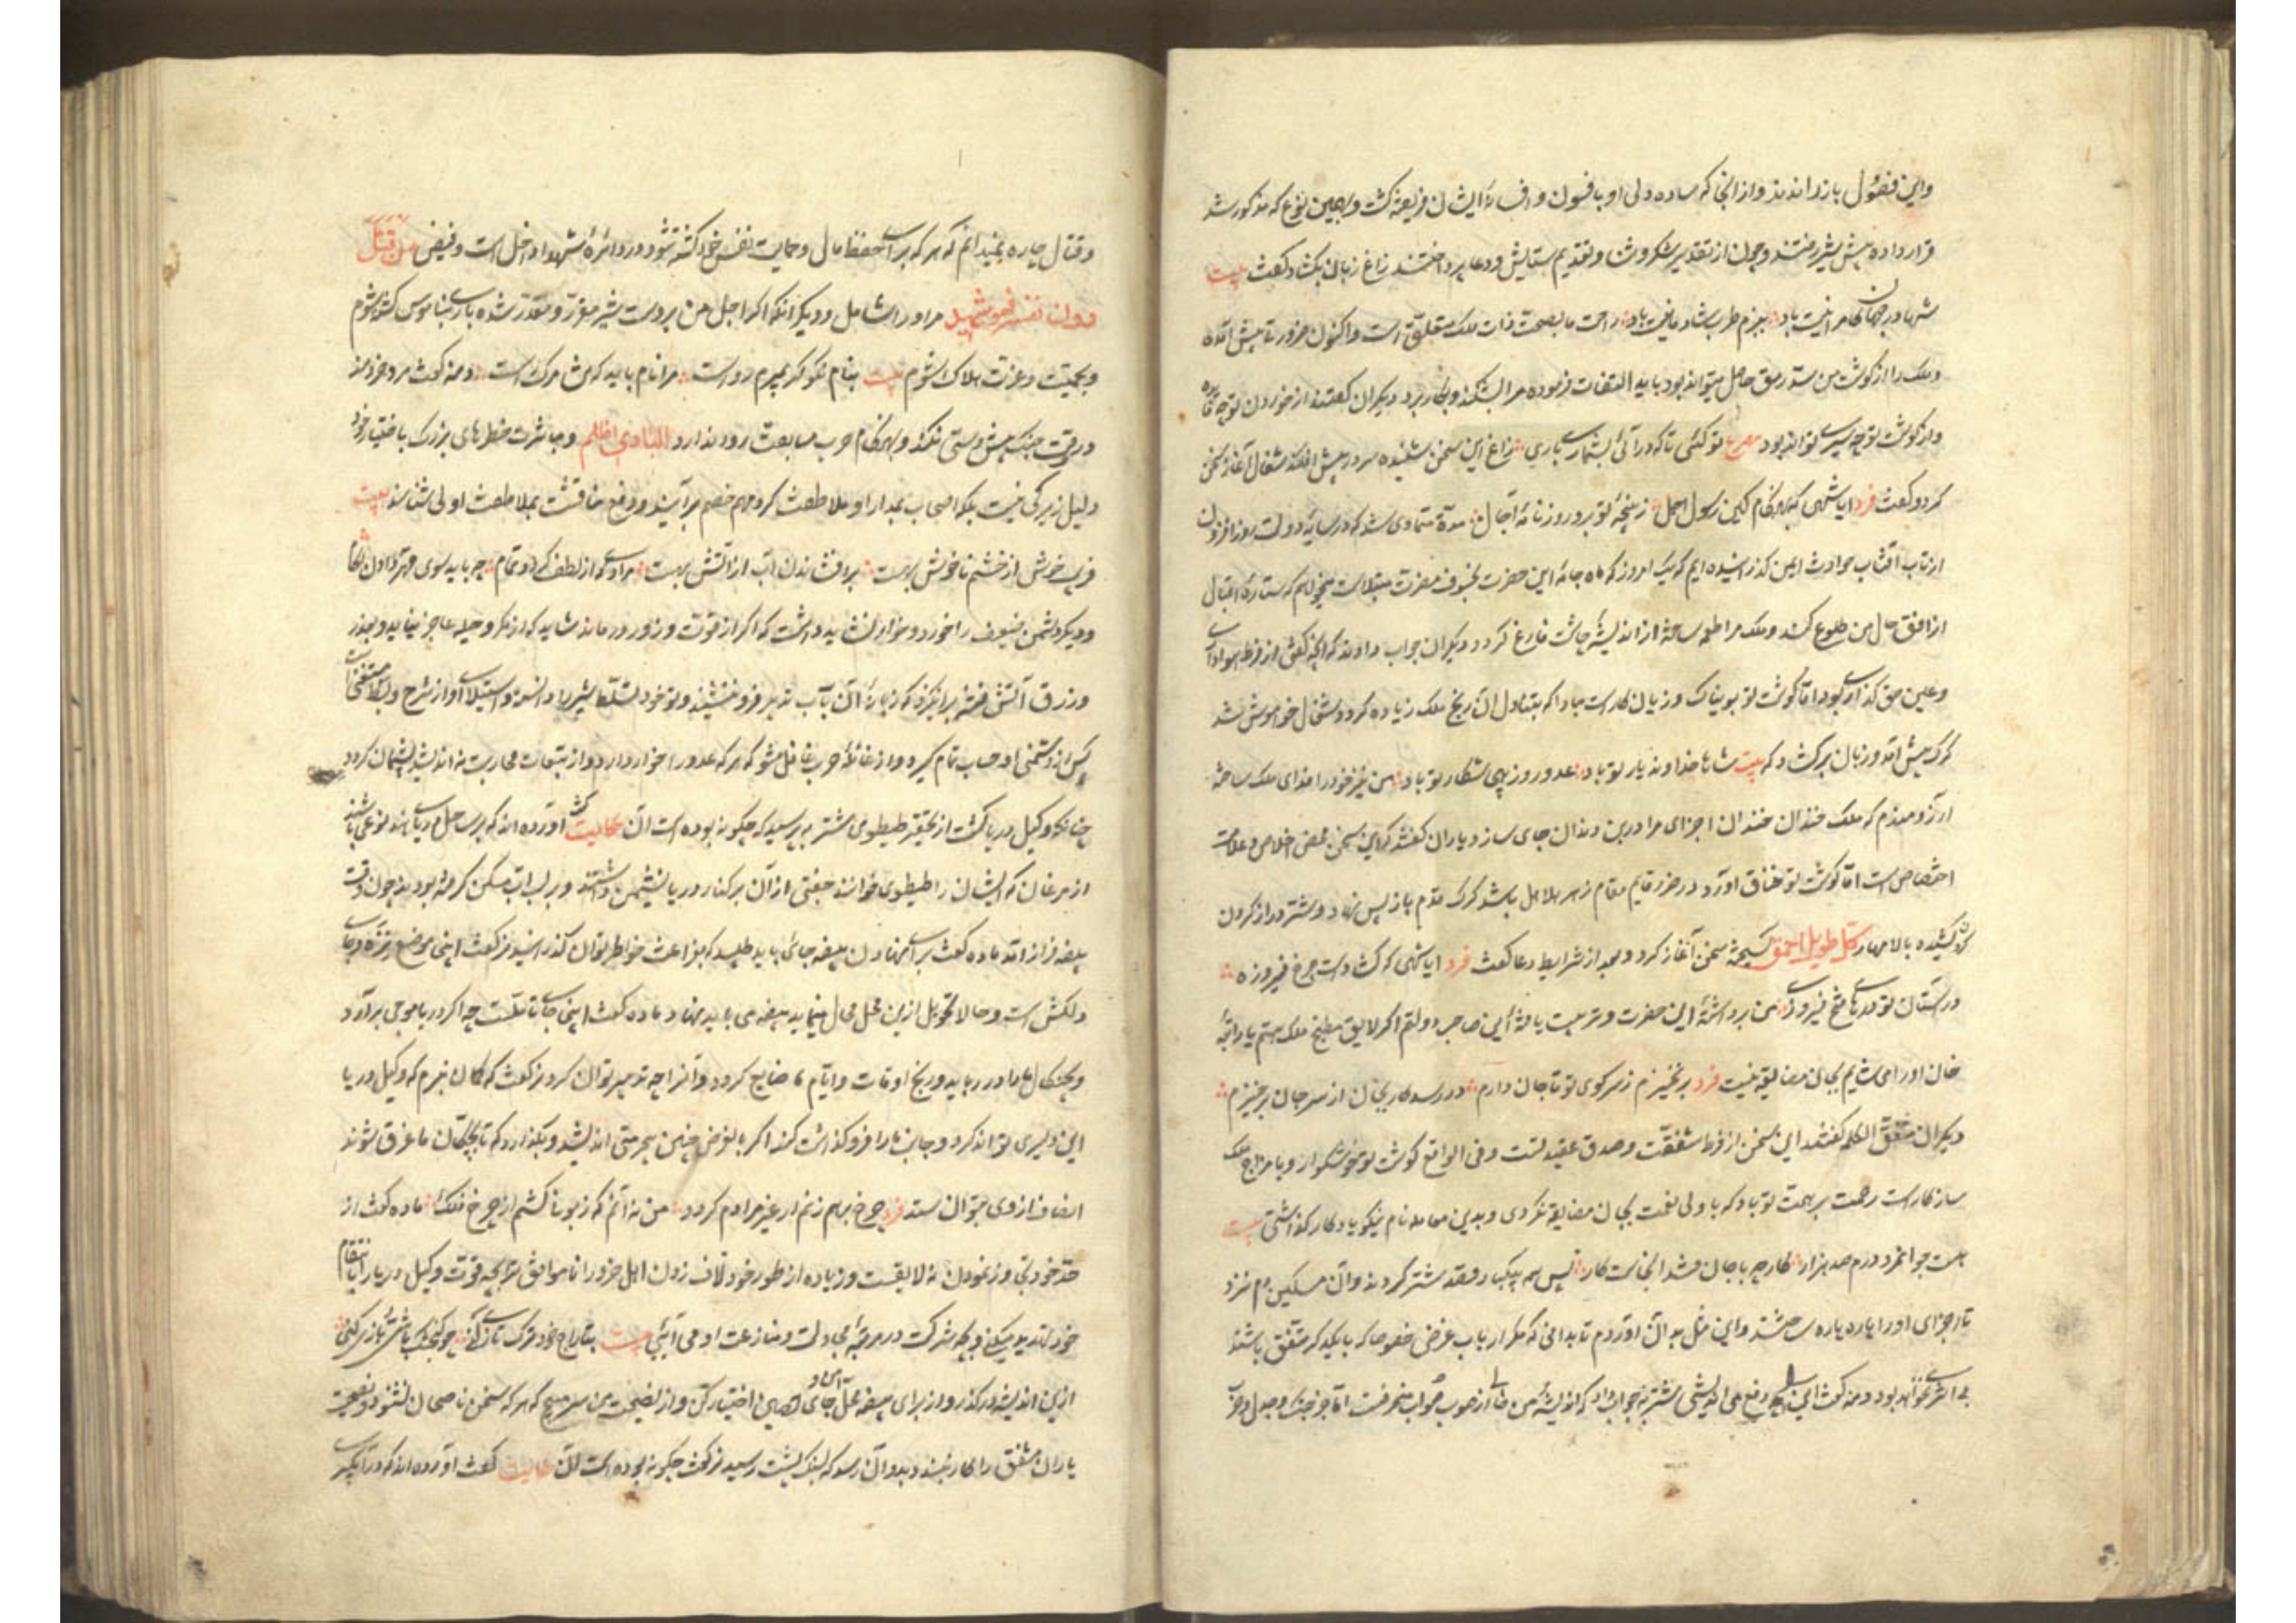 واین فصول بازراندند و از انجا که ساده دلی او بافسون و افسانهٔ ایشان فریفته کشت و بهمین نوع که مذکور شد
قرار داده پیش شیر رفتند و چون از تقدیر شکر و ثنا و تقدیم ستایش و دعا پرداختند زاغ زبان بکشاد و کفت بیت
شها در جهان کامرانیت باد ببزم طرب شادمانیت باد راحت ما بصحت ذات ملک متعلق است و اکنون ضرورتا پیش آمده
و ملک را از کوشت من سد رمق حاصل میتواند بود باید التفات فرموده مرا بشکند و بکار برد دیکران کفتند از خوردن تو چه فایده
و از کوشت تو چه سیری تواند بود مصرع تو کئی تا که در آئی بشمار باری زاغ این سخن شنیده سر در پیش افکند شغال آغاز سخن
کرد و کفت فرد ایا شهی که بهنکام کین رسول اجل ز پنجهٔ تو برد روزنامهٔ آجال مدة متمادی شد که در سایهٔ دولت روز افزون
از تاب آفتاب حوادث ایمن کذرانیده ایم امروز که ماه جاه این حضرت بخسوف مضرت مبتلاست میخواهم که ستارهٔ اقبال
از افق حال من طلوع کند و ملک مرا طعمه ساخته از اندیشهٔ چاشت فارغ کردد دیکران جواب دادند که آنچه کفتی از فرط هواداری
و عین حق کذاری بود اما کوشت تو بویناک و زیان کار است مبادا که بتناول آن رنج ملک زیاده کردد شغال خواموش شد
کرک پیش آمد و زبان برکشاد که بیت شاها خداوند یار تو باد عدو روز هیجا شکار تو باد من نیز خود را فدای ملک ساخته
آرزومندم که ملک خندان خندان اجزای مرا در بن دندان جای سازد یاران کفتند که این سخن محض اخلاص و علامت
اختصاص است اما کوشت تو خناق آورد و در ضرر قایم مقام زهر هلاهل باشد کرک قدم باز پس نهاد و شتر دراز کردن
کردن کشیده بالا مهار کل طویل احمق کسیخته سخن آغاز کرد و بعد از شرایط دعا کفت فرد ایا شهی که کشادست چرخ فیروزه
درستان تو درهای فتح و فیروزی من برداشتهٔ این حضرت و تربیت یافتهٔ این صاحب دولتم اکر لایق مطبخ ملک هستم یا راتبهٔ
خان او را می شایم بجان مضایقه نیست فرد برنخیزم ز سر کوی تو تا جان دارم ور رسد کار بجان از سر جان برخیزم
دیکران متفق الکلمه کفتند این سخن از فرط شفقت و صدق عقیدتست و فی الواقع کوشت تو خوشکوار و با مزاج ملک
سازکار است رحمت بر همت تو باد که با ولی نعمت بجان مضایقه نکردی و بدین معامله نام نیکو یادکار کذاشتی بیت
هست جوانمرد درم صد هزار کار چو با جان فتد آنجاست کار پس همه بیکبار قصد شتر کردند و آن مسکین دم نزد
تا اجزای او را پاره پاره ساختند و این مثل بدان آوردم تا بدانی که مکر ارباب غرض خصوصا که با یکدیکر متفق باشند
بی اثری نخواهد بود دمنه کفت دفع می اندیشی شنزبه جواب داد که اندیشهٔ من از صوب صواب منحرفست اما جز جنک و جدل و حرب
و قتال چاره نمیدانم که هر که برای حفظ مال و حمایت نفس خود کشته شود در دائرهٔ شهدا داخل است و فیض من قتل
دون نفسه فهو شهید مر او را شامل و دیکر آنکه اکر اجل من بر دست شیر مقرر و مقدر شده باری بناموس کشته شوم
و بحمیت و عزت هلاک شوم بیت بنام نکو کر بمیرم رواست مرا نام باید که تن مرک راست دمنه کفت مرد خردمند
در وقت جنک پیش دستی نکند و بهنکام حرب مسابقت روا ندارد البادی اظلم و مباشرت خطرهای بزرک باختیار خود
دلیل زیرکی نیست بلکه اصحاب بمدارا و ملاطفت کرد مهم خصم برآیند و دفع مناقشت بملاطفت اولی شناسند بیت
وریغ خوش از خشم ناخوش بهست برافشاندن آب از آتش بهست مرادی که از لطف کردد تمام چه باید سوی قهر دادن لکام
و دیکر دشمن ضعیف را خورد و خوار نشاید داشت که اکر از قوت و زور درماند شاید که از مکر و حیله عاجز نیاید و بغدر
و زرق آتش فتنه برانکیزد که زبانهٔ آن بآب تدبیر فرو ننشیند و تو خود تسلط شیر را دانسته و استیلای او از شرح و بسط مستغنی است
پس از دشمنی او حساب تمام کیر و از غائلهٔ حرب غافل مشو که هر که عدو را خوار دارد و از تبعات محاربت نه اندیشد پشیمان کردد
چنانکه وکیل دریا کشت از تحقیر طیطوی شنزبه پرسید که چکونه بوده است آن حکایت کفت آورده اند که بر ساحل دریای هند نوعی باشند
از مرغان که ایشان را طیطوی خوانند جفتی از آن بر کنار دریا نشیمن داشتند و بر لب آب مسکن کرفته بودند چون وقت
بیضه فراز آمد ماده کفت برای نهادن بیضه جائی باید طلبید که بفراغت خواطر توان کذرانید نر کفت اینجا موضع نزه و جای
دلکش است و حالا تحویل ازین محل محال مینماید بیضه می باید نهاد ماده کفت اینجا جای تاملست چه اکر دریا موجی برآرد
و بچکان ما را در رباید و رنج اوقات و ایام ما ضایع کردد آنرا چه تدبیر توان کرد نر کفت که کمان نبرم که وکیل دریا
این دلیری تواند کرد و جانب ما را فرو کذاشت کند اکر بالفرض چنین بیحرمتی اندیشد و بکذارد که تا بچکان ما غرق شوند
انصاف از وی بتوان ستد فرد چرخ برهم زنم ار غیر مرادم کردد من نه آنم که زبونی کشم از چرخ فلک ماده کفت از
حد خود تجاوز نمودن نه لایقست و زیاده از طور خود لاف زدن اهل خرد را ناموافق تو بچه قوت وکیل دریا را بانتقام
خود تهدید میکنی و بچه شوکت در مرتبهٔ مجادلت و منازعت او می آئی بیت
ازین اندیشه در کذر و از برای بیضه محل امن و جای حصین اختیار کن و از نصیحت من سر مپیچ که هر که سخن ناصحان نشنود و نصیحت
یاران مشفق را کار نبندد بدو آن رسد که بسنک پشت رسید نر کفت چکونه بوده است آن حکایت کفت آورده اند که در آبکیری